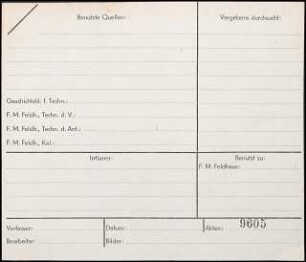 Benutzte Quellen:
Vergebens durchsucht:
Geschichtsbl. f. Techn.:
F. M. Feldh., Techn. d. V.:
F. M. Feldh., Techn. d. Ant.:
F. M. Feldh., Kal.:
Irrtümer:
Benutzt zu:
F. M. Feldhaus:
Verfasser:
Datum:
Akten: 9605
Bearbeiter:
Bilder: